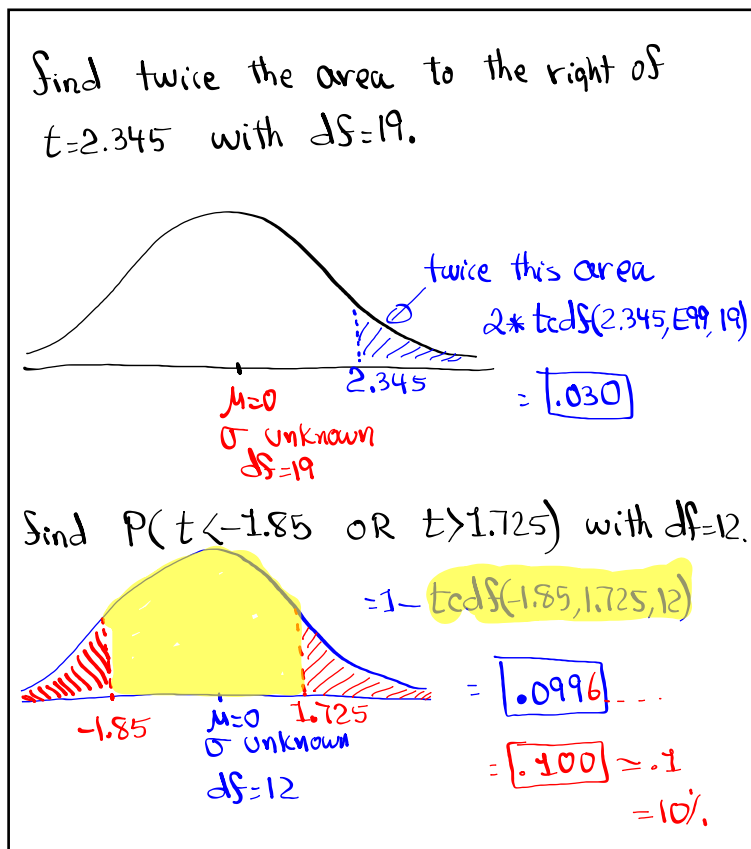 find twice the area to the right of
t=2.345 with df=19.
twice this area
2* tcdf(2.345,E99,19)
2.345
= .030
μ=0
σ unknown
df=19
find P(t<-1.85 OR t>1.725) with df=12.
=1- tcdf(-1.85,1.725,12)
-1.85
μ=0
1.725
σ unknown
df=12
= .0996....
= .100 ≃ .1
=10%